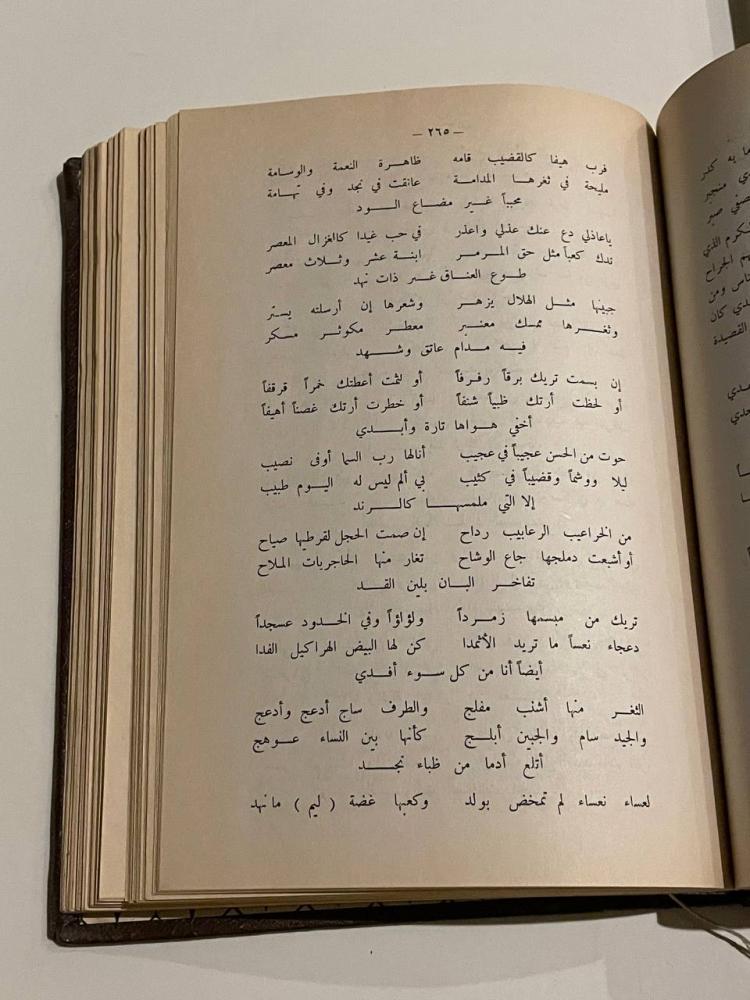 — ٢٦٥ —
فرب هيفا كالقضيب قامه ظاهرة النعمة والوسامة
مليحة في ثغرها المدامة عانقت في نجد وفي تهامة
محبباً غير مضاع الود
ياعاذلي دع عنك عذلي واعذر في حب غيدا كالغزال المعصر
تدك كعباً مثل حق المرمر ابنة عشر وثلاث معصر
طوع العناق غير ذات نهد
جبينها مثل الهلال يزهر وشعرها إن أرسلته يستر
وثغرها ممسك معنبر معطر مكوثر مسكر
فيه مدام عاتق وشهد
إن بسمت تريك برقاً رفرفاً أو لثمت أعطتك خمراً قرقفاً
أو لحظت أرتك ظبياً شنفاً أو خطرت أرتك غصناً أهيفاً
أخفي هواها تارة وأبدي
حوت من الحسن عجيباً في عجيب أنالها رب السما أوفى نصيب
ليلا ووشماً وقضيباً في كثيب بي ألم ليس له اليوم طبيب
إلا التي ملمسها كالرند
من الخراعيب الرعابيب رداح إن صمت الحجل لقرطيها صياح
أو أشبعت دملجها جاع الوشاح تغار منها الحاجريات الملاح
تفاخر البان بلين القد
تريك من مبسمها زمرداً ولؤلؤاً وفي الخدود عسجداً
دعجاء نعساً ما تريد الأثمدا كن لها البيض الهراكيل الفدا
أيضاً أنا من كل سوء أفدي
الثغر منها أشنب مفلج والطرف ساج أدعج وأدعج
والجيد سام والجبين أبلج كأنها بين النساء عوهج
أتلع أدما من ظباء نجد
لعساء نعساء لم تمخض بولد وكعبها غضة ( ليم ) مانهد